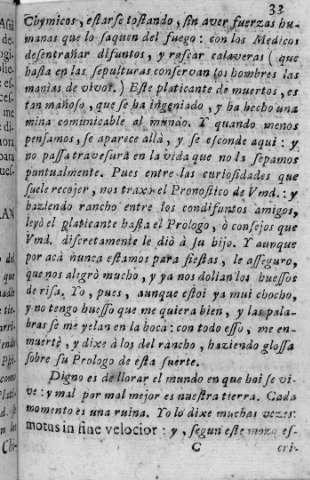 33
Chymicos, estarse tostando, sin aver fuerzas hu-
manas que lo saquen del fuego: con los Medicos
desentrañar difuntos, y rascar calaveras (que
hasta en las sepulturas conservan los hombres las
manias de vivos.) Este platicante de muertos, es
tan mañoso, que se ha ingeniado, y ha hecho una
mina comunicable al mundo. Y quando menos
pensamos, se aparece allà, y se esconde aqui: y
no passa travesura en la vida que no la sepamos
puntualmente. Pues entre las curiosidades que
suele recojer, nos traxo el Pronostico de Vmd.: y
haziendo rancho entre los condifuntos amigos,
leyò el platicante hasta el Prologo, ò consejos que
Vmd. discretamente le diò à su hijo. Y aunque
por acà nunca estamos para fiestas, le asseguro,
que nos alegrò mucho, y ya nos dolian los huessos
de risa. Yo, pues, aunque estoi ya mui chocho,
y no tengo huesso que me quiera bien, y las pala-
bras se me yelan en la boca: con todo esso, me en-
muertè, y dixe à los del rancho, haziendo glossa
sobre su Prologo de esta suerte.
Digno es de llorar el mundo en que hoi se vi-
ve: y mal por mal mejor es nuestra tierra. Cada
momento es una ruina. Yo lo dixe muchas vezes:
motus in fine velocior: y, segun este mozo es-
C cri-